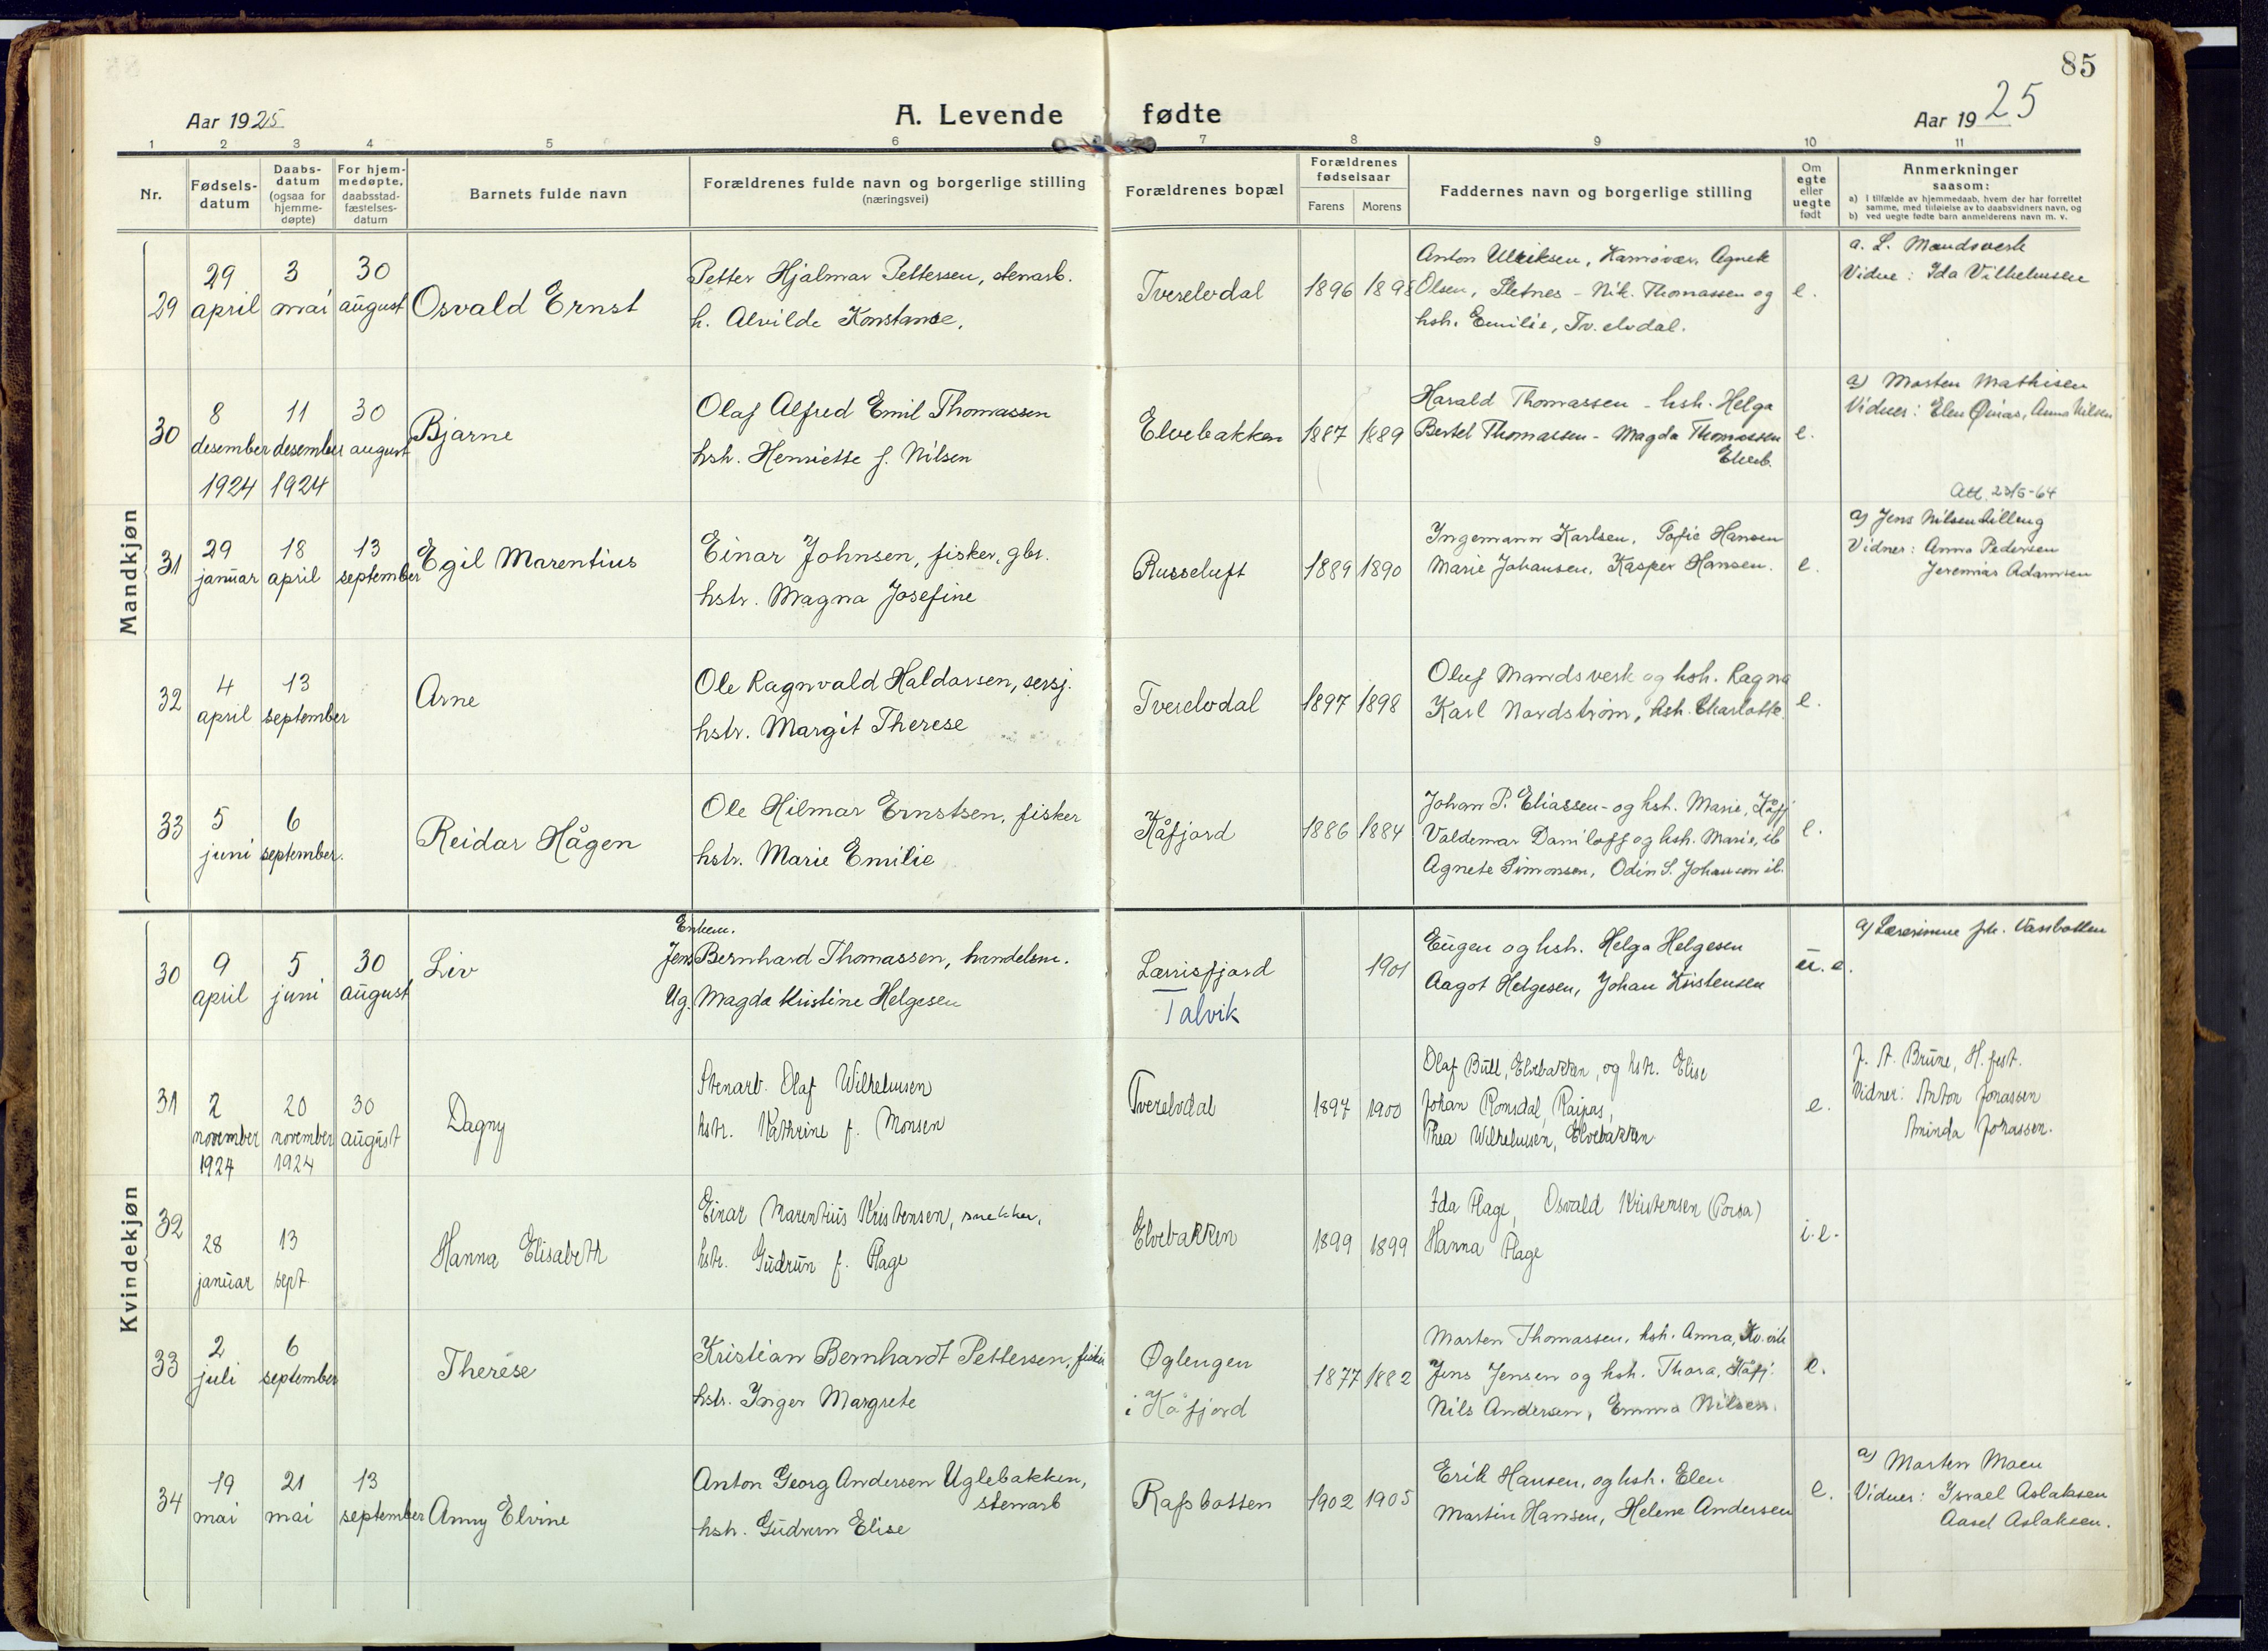 85
Aar 1925
A. Levende fødte
Aar 1925
1 2 3 4 5 6 7 8 9 10 11
Nr.
Fødsels-datum
Daabs-datum (ogsaa for hjemme-døpte)
For hjem-medøpte, daabsstad-fæstelses-datum
Barnets fulde navn
Forældrenes fulde navn og borgerlige stilling (næringsvei)
Forældrenes bopæl
Forældrenes fødselsaar
Farens Morens
Faddernes navn og borgerlige stilling
Om egte eller uegte født
Anmerkninger saasom:
a) i tilfælde av hjemmedaab, hvem der har forrettet samme, med tilføielse av to daabsvidners navn, og
b) ved uegte fødte barn anmelderens navn m. v.
Mandkjøn
29
29 april
3 mai
30 august
Osvald Ernst
Petter Hjalmar Pettersen, stenarb.
h. Alvilde Konstanse.
Tverelvdal
1896 1898
Anton Ulriksen, Kamøvær, Agnete
Olsen, Sletnes - Nik. Thomassen og
hsh. Emilie, Tv. elvdal.
e.
a. L. Mandsverk
Vidne: Ida Vilhelmsen
30
8 desember 1924
11 desember 1924
30 august
Bjarne
Olaf Alfred Emil Thomassen
hsh. Henriette f. Nilsen
Elvebakken
1887 1889
Harald Thomassen - hsh. Helga
Bertel Thomassen - Magda Thomassen
Elveb.
e.
a) Morten Mathisen
Vidner: Elen Øinas, Anna Nilsen
31
29 januar
18 april
13 september
Egil Marentius
Einar Johnsen, fisker, gbr.
hstr. Magna Josefine
Russeluft
1889 1890
Ingemann Karlsen, Sofie Hansen
Marie Johansen, Kasper Hansen.
e.
Att. 23/5-64
a) Jens Nilsen Lilleng
Vidner: Anna Pedersen
Jeremias Adamsen
32
4 april
13 september
Arne
Ole Ragnvald Haldorsen, sersj.
hstr. Margit Therese
Tverelvdal
1897 1898
Oluf Mandsverk og hsh. Ragna
Karl Nordstrøm, hsh. Charlotte.
e.
33
5 juni
6 september.
Reidar Hågen
Ole Hilmar Ernstsen, fisker
hstr. Marie Emilie
Kåfjord
1886 1884
Johan P. Eliassen - og hst. Marie, Kåfj
Valdemar Daniloff og hsh. Marie, ib
Agnete Simonsen, Odin S. Johansen ib.
e.
Kvindekjøn
30
9 april
5 juni
30 august
Liv
Enkem.
Jens Bernhard Thomassen, handelsm.
Ug. Magda Kristine Helgesen
Lærrisfjord
Talvik
1901
Eugen og hsh. Helga Helgesen
Aagot Helgesen, Johan Kristensen
u. e.
a) Lærerinne frk. Vassbotten
31
2 november 1924
20 november 1924
30 august
Dagny
Stenarb. Olaf Wilhelmsen
hstr. Kathrine f. Monsen
Tverelvdal
1897 1900
Olaf Bull, Elvebakken, og hstr. Elise
Johan Romsdal, Raipas,
Thea Wilhelmsen, Elvebakken
e.
J. A. Brune, H. fest.
Vidner: Anton Jonassen
Aminda Jonassen.
32
28 januar
13 sept.
Hanna Elisabeth
Einar Marentius Kristensen, snekker,
hstr. Gudrun f. Hage
Elvebakken
1899 1899
Ida Hage, Osvald Kristensen (Porsa)
Hanna Hage
i.e.
33
2 juli
6 september
Therese
Kristian Bernhardt Pettersen, fisker
hstr. Inger Margrete
Øglengen
i Kåfjord
1877 1882
Morten Thomassen, hsh. Anna, Kv.vik
Jens Jensen og hsh. Thora, Kåfj.
Nils Andersen, Emma Nilsen.
e.
34
19 mai
21 mai
13 september
Anny Elvine
Anton Georg Andersen Uglebakken,
stenarb
hsh. Gudrun Elise
Rafsbotten
1902 1905
Erik Hansen, og hsh. Elen
Martin Hansen, Helene Andersen
e.
a) Morten Moen
Vidner: Israel Aslaksen
Aasel Aslaksen.